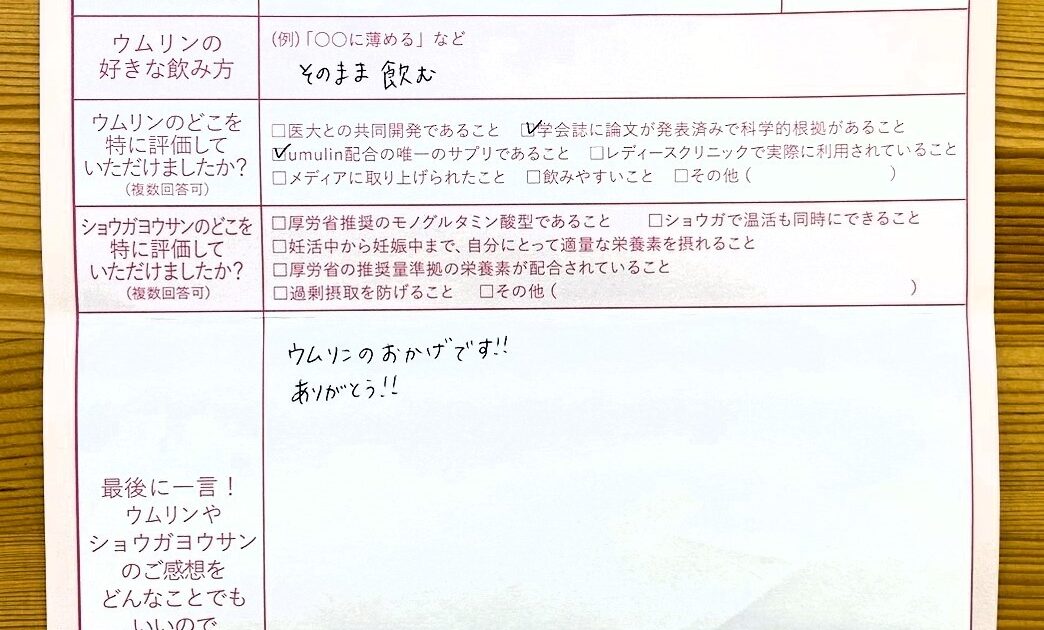 ウムリンの
好きな飲み方
(例)「〇〇に薄める」など
そのまま飲む
ウムリンのどこを
特に評価して
いただけましたか?
(複数回答可)
□医大との共同開発であること ☑学会誌に論文が発表済みで科学的根拠があること
☑umulin配合の唯一のサプリであること □レディースクリニックで実際に利用されていること
□メディアに取り上げられたこと □飲みやすいこと □その他( )
ショウガヨウサンのどこを
特に評価して
いただけましたか?
(複数回答可)
□厚労省推奨のモノグルタミン酸型であること □ショウガで温活も同時にできること
□妊活中から妊娠中まで、自分にとって適量な栄養素を摂れること
□厚労省の推奨量準拠の栄養素が配合されていること
□過剰摂取を防げること □その他( )
ウムリンのおかげです!!
ありがとう!!
最後に一言!
ウムリンや
ショウガヨウサン
のご感想を
どんなことでも
いいので